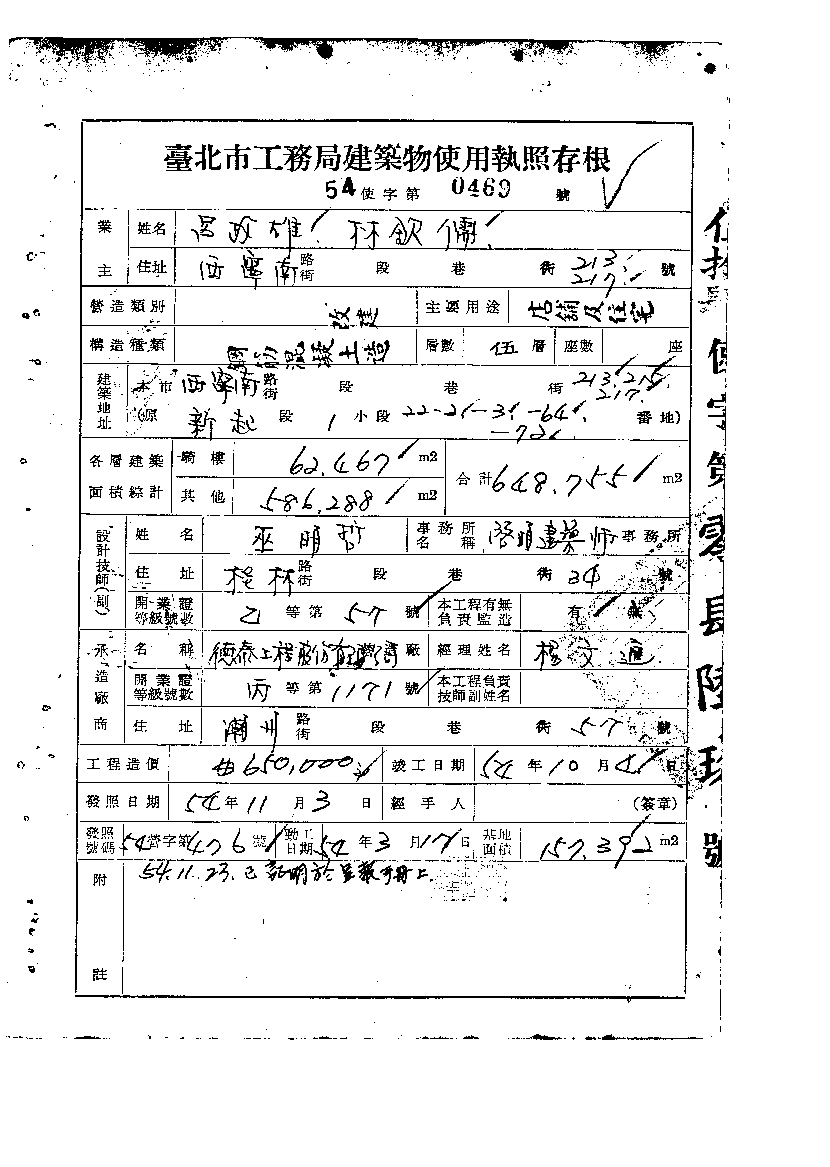 臺北市工務局建築物使用執照存根
54使字第 0469 號
業主 姓名 呂政雄 林欽儒
住址 西寧南 路街 段 巷 街 213 217 號
營造類別 改建 主要用途 店舖及住宅
構造種類 鋼筋混凝土造 層數 伍層 座數 座
建築地址 本市西寧南 路街 段 巷 街 213, 215, 217
(原 新起 段 1 小段 22-21-31-64 -72 番地)
各層建築面積綜計 騎樓 62.467 m2 合計 648.755 m2
其他 586.288 m2
設計技師(副) 姓名 巫明哲 事務所名稱 啓明建築師事務所
住址 桂林 路街 段 巷 街 34 號
開業證等級號數 乙等第 57 號 本工程有無負責監造 有 無
承造廠商 名稱 德泰工程股份有限公司 廠 經理姓名 楊文
開業證等級號數 丙等第 1171 號 本工程負責技師副姓名
住址 潮州 路街 段 巷 街 57 號
工程造價 650,000 竣工日期 54年10月4日
發照日期 54年11月3日 經手人 (簽章)
發照號碼 54營字第476號 動工日期 54年3月17日 基地面積 157.392 m2
附註 54.11.23.已証明於
伍拾肆使字第零肆陸玖號